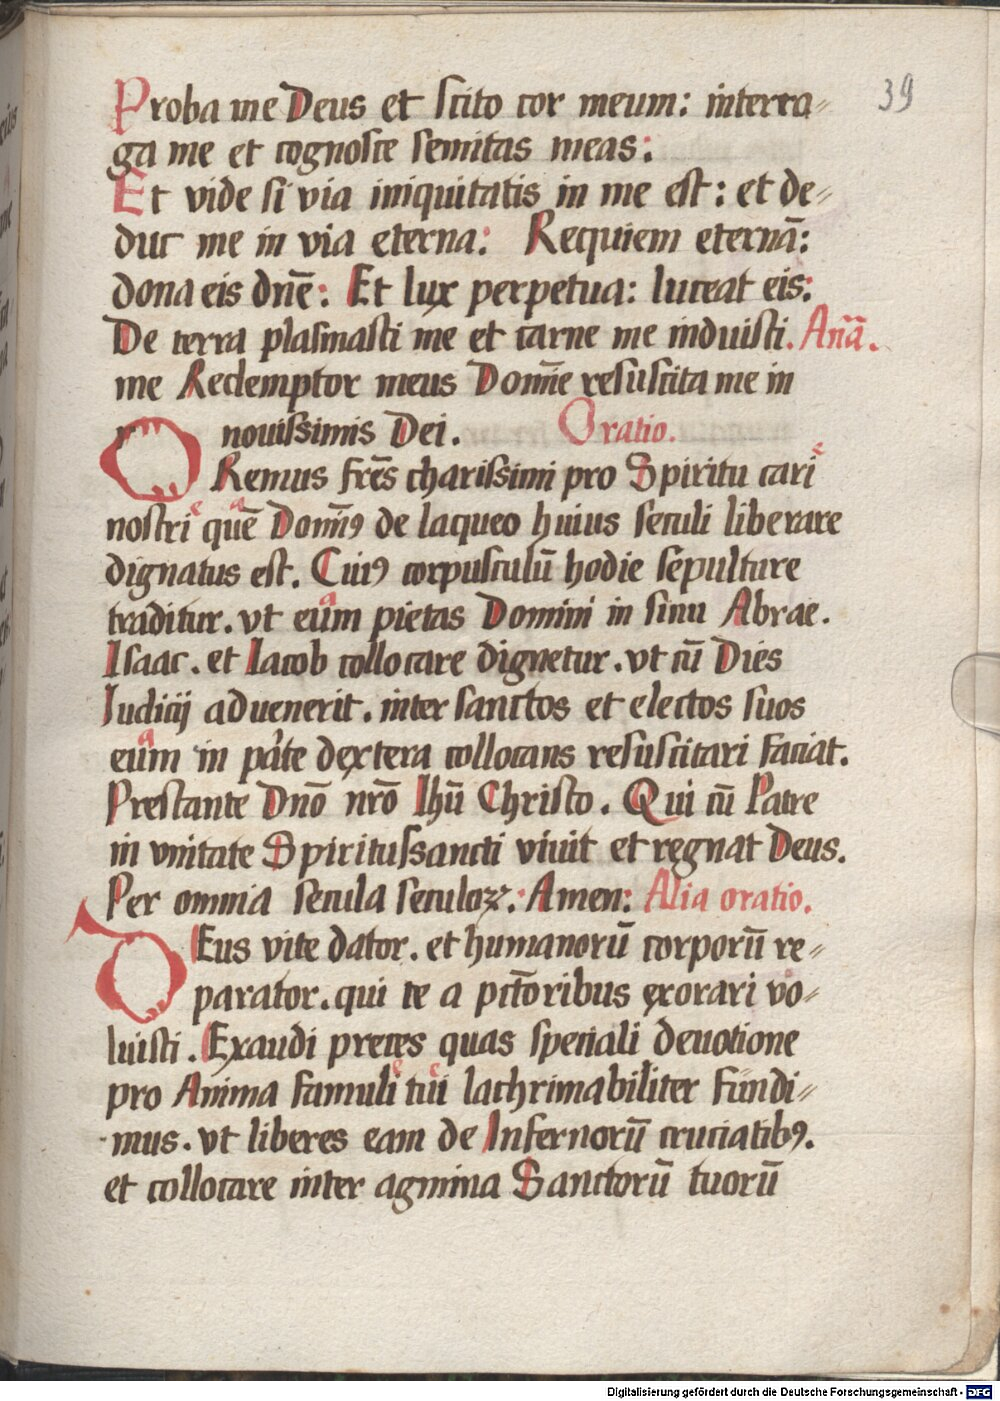 39
Proba me Deus et scito cor meum: interro-
ga me et cognosce semitas meas:
Et vide si via iniquitatis in me est: et de-
duc me in via eterna: Requiem eternā:
dona eis dn̄e: Et lux perpetua: luceat eis:
De terra plasmasti me et carne me induisti. An̄a.
me Redemptor meus Domīe resuscita me in
novissimis Dei. Oratio.
ORemus fr̄es charissimi pro Spiritu cari e
nostri e quē a Dom̄ꝰ de laqueo huius seculi liberare
dignatus est. Cuiꝰ corpusculū hodie sepulture
traditur. vt eum a pietas Domini in sinu Abrae.
Isaac. et Iacob collocare dignetur. vt cū Dies
Iudicij aduenerit. inter sanctos et electos suos
eum a in pa'te dextera collocans resuscitari faciat.
Prestante Dn̄o nr̄o Ihū Christo. Qui cū Patre
in vnitate Spiritussancti viuit et regnat Deus.
Per omnia secula seculoꝝ. Amen: Alia oratio.
DEus vite dator. et humanorū corporū re-
parator. qui te a pcc̄toribus exorari vo-
luisti. Exaudi preces quas speciali deuotione
pro Anima famuli e tui e lachrimabiliter fundi-
mus. vt liberes eam de Infernorū cruciatibꝰ.
et collocare inter agmina Sanctorū tuorū
Digitalisierung gefördert durch die Deutsche Forschungsgemeinschaft - DFG